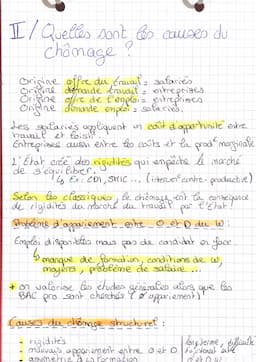 II / Quelles sont les causes du
chômage ?
Origine offre du travail = salariés
Origine demande travail = entreprises
Origine offre de l'emploi = entreprises
Origine demande emploi = salariés.
Les salariés appliquent un coût d'opportunité entre
travail et loisir.
Entreprises aussi entre les coûts et la prod° marginale
L'État crée des rigidités qui empêche le marché
de s'équilibrer.
↳ Ex: CDI, SMIC ... (intervent° contre-productive)
Selon les classiques, le chômage est la conséquence
de rigidités du marché du travail par l'État !
Problème d'appariement entre O et D du W :
Emplois disponibles mais pas de candidat en face.
↳ manque de formation, conditions de W,
moyens, problème de salaire...
+ on valorise les études générales alors que les
BAC pro sont cherchés (≠ appariement)
Causes du chômage structurel :
- rigidités
- mauvais appariement entre O et D
- asymétrie d'information
long terme, difficulté